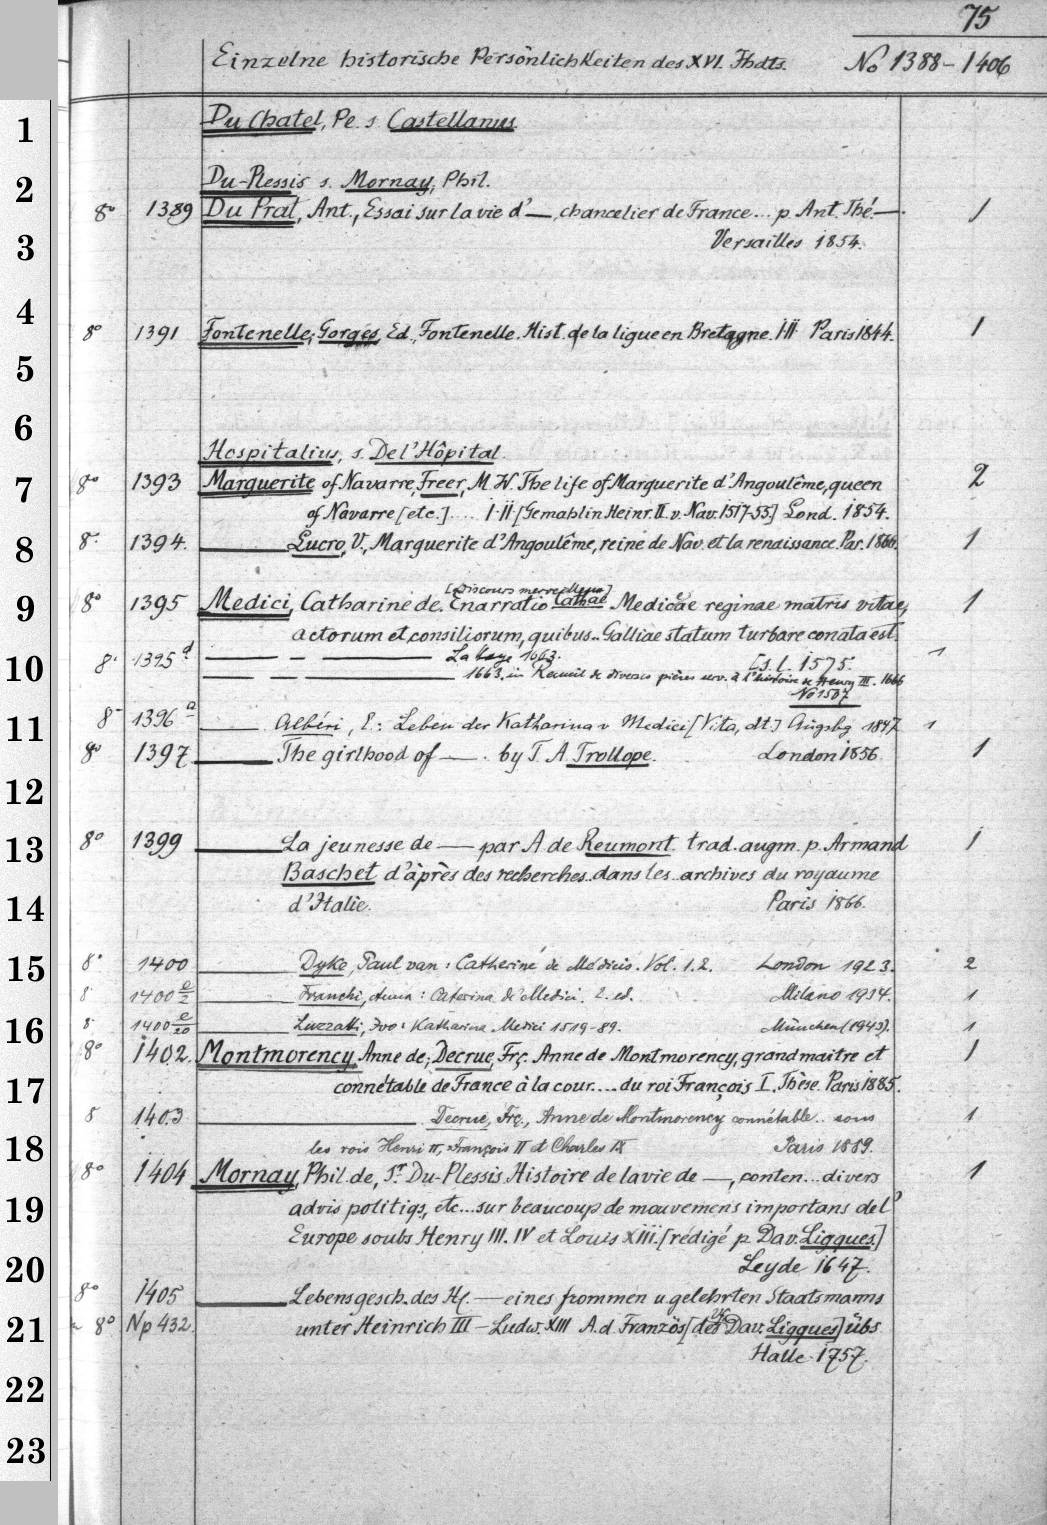 75
Einzelne historische Persönlichkeiten des XVI. Jhdts. No 1388-1406
1
Du Chatel, Pe. s. Castellanus.
2
Du-Plessis s. Mornay, Phil.
8° 1389 Du Prat, Ant., Essai sur la vie d'—, chancelier de France... p. Ant. Thé.—. 1
3
Versailles 1854.
4
8° 1391 Fontenelle; Gorges, Ed., Fontenelle. Hist. de la ligue en Bretagne. I-II Paris 1844. 1
5
6
Hospitalius, s. De l'Hôpital.
7
8° 1393 Marguerite of Navarre, Freer, M. W. The life of Marguerite d'Angoulême, queen 2
of Navarre [etc.].... I-II [Gemahlin Heinr. II. v. Nav. 1517-55] Lond. 1854.
8
8° 1394. — Lucro, V., Marguerite d'Angoulême, reine de Nav. et la renaissance. Par. 1866. 1
[Discours merveilleux]
9
8° 1395 Medici, Catharine de. Enarratio Cathae Medicae reginae matris vitae, 1
actorum et consiliorum, quibus.. Galliae statum turbare conata est.
10
[s. l. 1575.
8° 1395 d — — — La Haye 1663. 1
— — — 1663. in Recueil de diverses pièces serv. à l'histoire de Henry III. 1666
No 1507
11
8° 1396 a — Albéri, E.: Leben der Katharina v Medici [Vita, dt.] Augsbg 1847 1
8° 1397 — The girlhood of —. by T. A. Trollope. London 1856 1
12
13
8° 1399 — La jeunesse de — par A de Reumont trad. augm. p. Armand 1
Baschet d'après des recherches.. dans les.. archives du royaume
14
d'Italie. Paris 1866.
15
8° 1400 — Dyke, Paul van: Catherine de Médicis. Vol. 1.2. London 1923. 2
8° 1400 e/2 — Franchi, Anna: Caterina de' Medici. 2. ed. Milano 1934. 1
16
8° 1400 e/20 — Luzzatti, Ivo: Katharina Medici 1519-89. München (1943). 1
8° 1402. Montmorency, Anne de; Decrue, Frç. Anne de Montmorency, grand maitre et 1
17
connétable de France à la cour.... du roi François I. Thèse. Paris 1885.
8 1403 — Decrue, Frç., Anne de Montmorency connétable.. sous 1
18
les rois Henri II, François II et Charles IX Paris 1889.
8° 1404 Mornay, Phil. de, Sr Du-Plessis. Histoire de la vie de —, conten... divers 1
19
advis politiqs, etc... sur beaucoup de mouvemens importans de l'
Europe soubs Henry III. IV et Louis XIII. [rédigé p. Dav. Liqques]
20
Leyde 1647.
8° 1405 — Lebensgesch. des H. — eines frommen u gelehrten Staatsmanns
21
8° Np 432. unter Heinrich III - Ludw. XIII A. d. Französ [des Dav. Liqques] übs
Halle 1757.
22
23